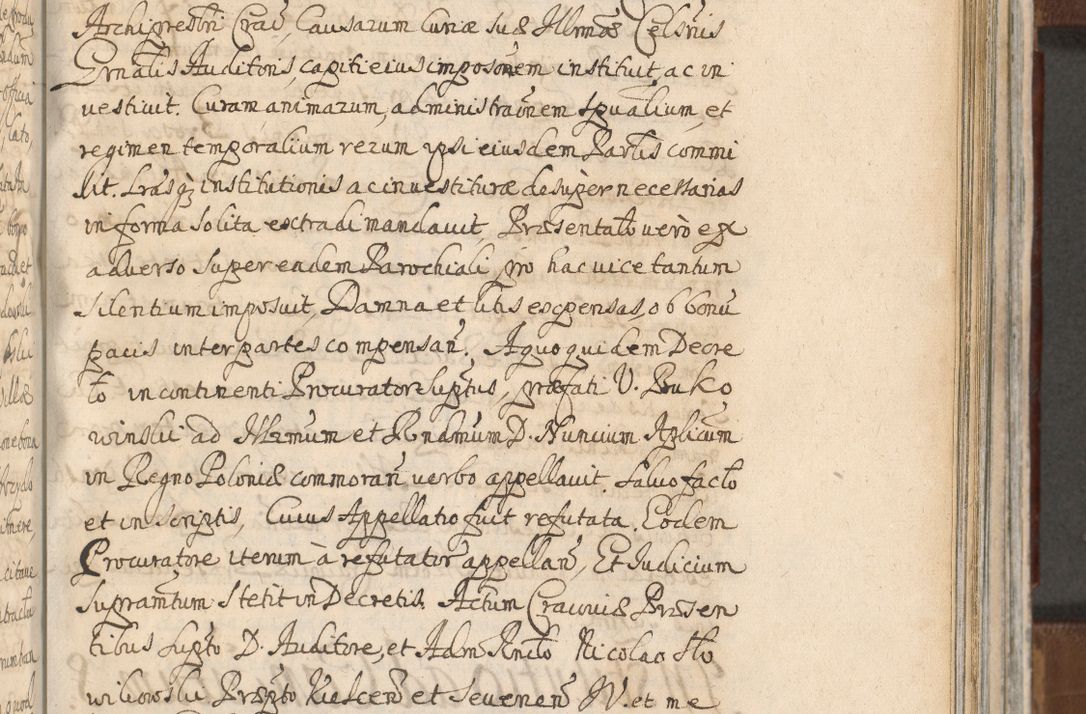 Archipresbri Crac, Causarum Curiæ suæ Illrmæ Celsnis
Grnalis Auditoris, capiti eius imposonem instituit, ac in
vestivit. Curam animarum, administraonem spualium, et
regimen temporalium rerum ipsi eiusdem Partis commi
sit. Lrasq3 institutionis ac investituræ desuper necessarias
in forma solita extradi mandavit, Præsentato vero ex
adverso super eadem Parochiali, pro hac vice tantum
silentium imposuit, Damna et litis expensas, ob bonu
pacis inter partes compensan. A quo quidem Decre
to in continenti Procuratore suptus, præfati V. Buko
winski ad Illrmum et Rndmum D. Nuncium Aplicum
in Regno Poloniæ commoran verbo appellavit. Salvo facto
et in scriptis, Cuius Appellatio fuit refutata. Eodem
Procuratore iterum à refutator appellan, Et Iudicium
supramtum stetit in Decretis. Actum Cracoviæ Præsen
tibus supto D. Auditore, et Adm Rndo Nicolao Slo
wikowski Præpto Kielcen et Seuenen IV. et me